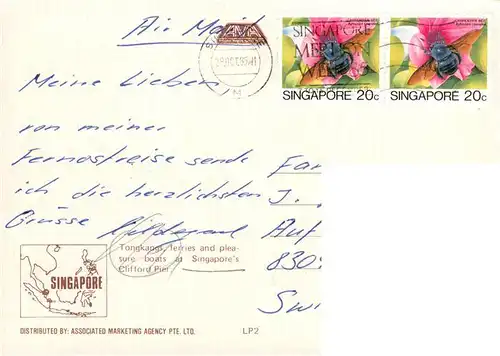 Air Mail
SINGAPORE
MERLION
WEEK
SINGAPORE 20c
SINGAPORE 20c
Meine Lieben,
von meiner
Fernostreise sende
ich die herzlichsten
Grüsse Hildegard
Fa
J.
Auf
830
Swi
Tongkangs, ferries and plea-
sure boats at Singapore's
Clifford Pier.
SINGAPORE
DISTRIBUTED BY: ASSOCIATED MARKETING AGENCY PTE. LTD.
LP2